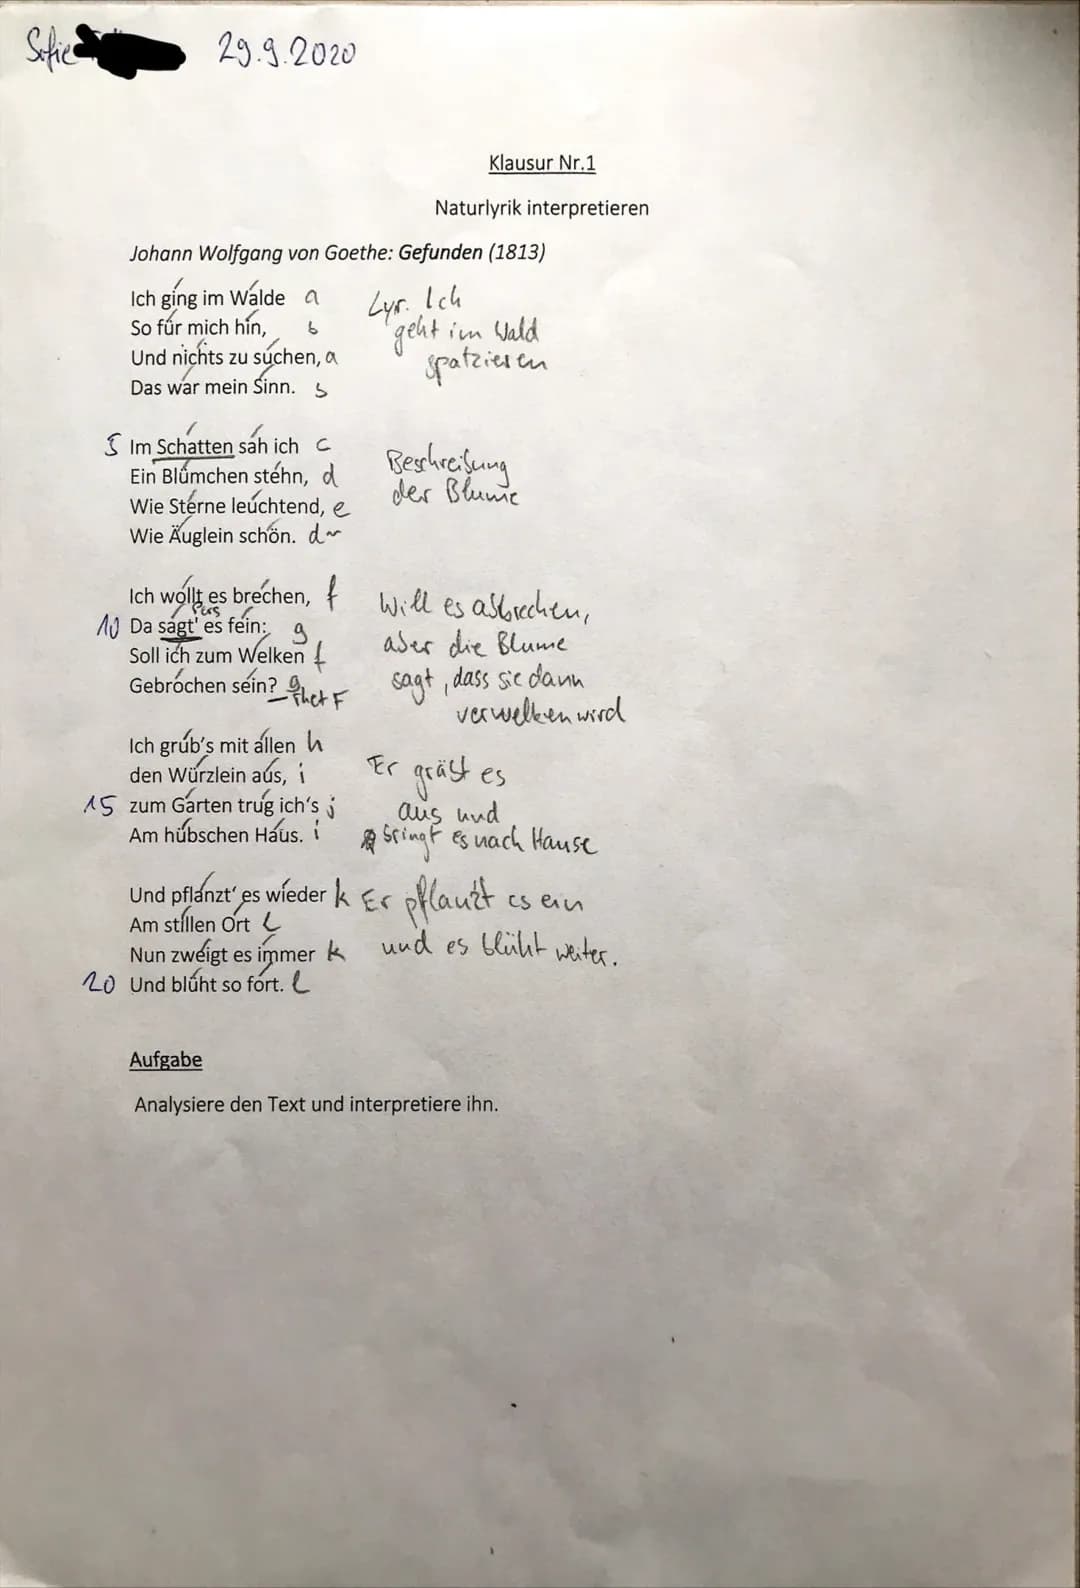 Sofie 29.9.2020
Klausur Nr.1
Naturlyrik interpretieren
Johann Wolfgang von Goethe: Gefunden (1813)
Ich ging im Walde a Lyr. Ich
So für mich hin, b geht im Wald
Und nichts zu suchen, a spatzieren
Das war mein Sinn. b
5 Im Schatten sah ich c Beschreibung
Ein Blümchen stehn, d der Blume
Wie Sterne leuchtend, e
Wie Äuglein schön. d
Ich wollt es brechen, f Will es abbrechen,
Pers
10 Da sagt' es fein: g aber die Blume
Soll ich zum Welken f sagt, dass sie dann
Gebrochen sein? g Rhet F verwelken wird
Ich grub's mit allen h Er gräbt es
den Würzlein aus, i
15 zum Garten trug ich's j aus und
Am hübschen Haus. i bringt es nach Hause
Und pflanzt' es wieder k Er pflanzt es ein
Am stillen Ort l
Nun zweigt es immer k und es blüht weiter.
20 Und blüht so fort. l
Aufgabe
Analysiere den Text und interpretiere ihn.